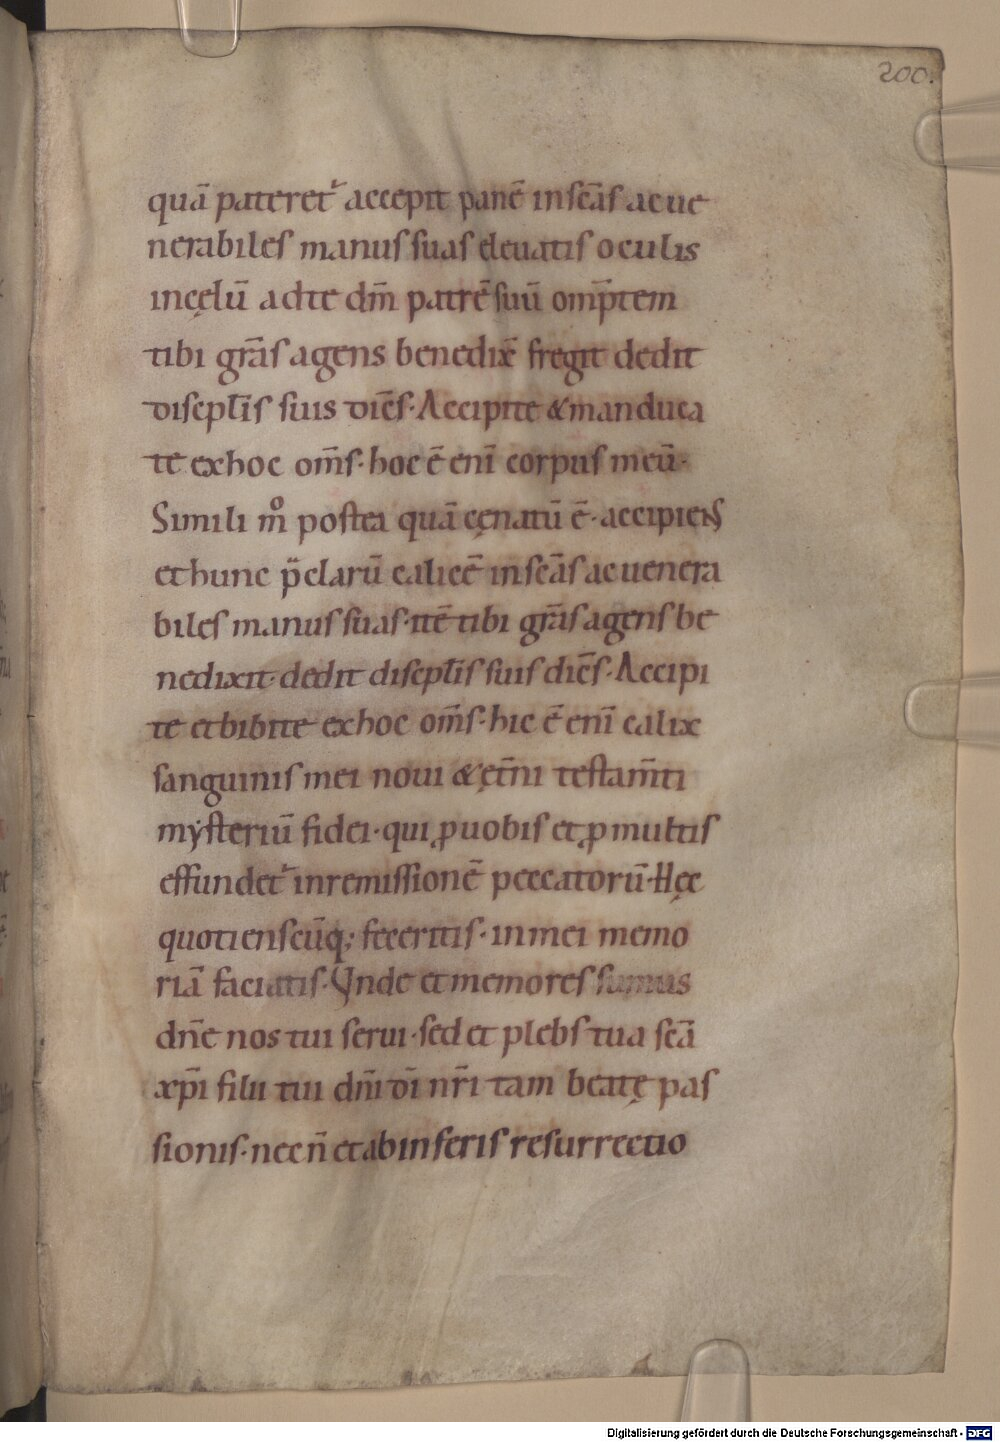 200.
quā pateret᷑ accepit panē in scās ac ue
nerabiles manus suas eleuatis oculis
in cęlū ad te dm̄ patrē suū omp̄tem
tibi grās agens benedix̄ fregit dedit
discpl̄is suis diēs· Accipite & manduca
te ex hoc om̄s· hoc ē enī corpus meū·
Simili mͦ postea quā cęnatū ē· accipiens
et hunc p̄clarū calicē in scās ac uenera
biles manus suas· itē tibi grās agens be
nedixit· dedit discpl̄is suis diēs· Accipi
te et bibite ex hoc om̄s· hic ē enī calix
sanguinis mei noui & ęt̄ni testam̄ti
mẏsteriū fidei· qui ꝓ uobis et ꝓ multis
effundet᷑ in remissionē peccatorū· Hęc
quotienscūq; feceritis· in mei memo
riā faciatis· Vnde et memores sumus
dn̄e nos tui serui· sed et plebs tua scā
xp̄i filii tui dm̄i dī nr̄i tam beatę pas
sionis· nec n̄ et ab inferis resurrectio
Digitalisierung gefördert durch die Deutsche Forschungsgemeinschaft - DFG